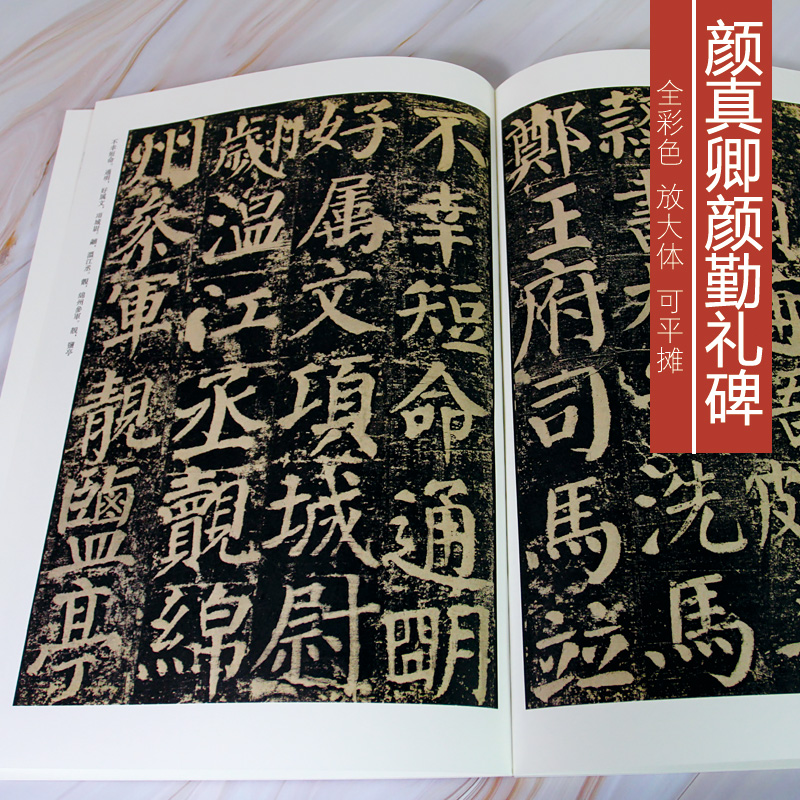 颜真卿颜勤礼碑
全彩色 放大体 可平摊
洗馬
鄭王府司馬竝
不幸短命通明
好属文項城尉
翽温江丞覿綿
州叅軍靚鹽亭
不幸短命。通明，好属文，項城尉。翽，温江丞。覿，綿州參軍。靚，鹽亭